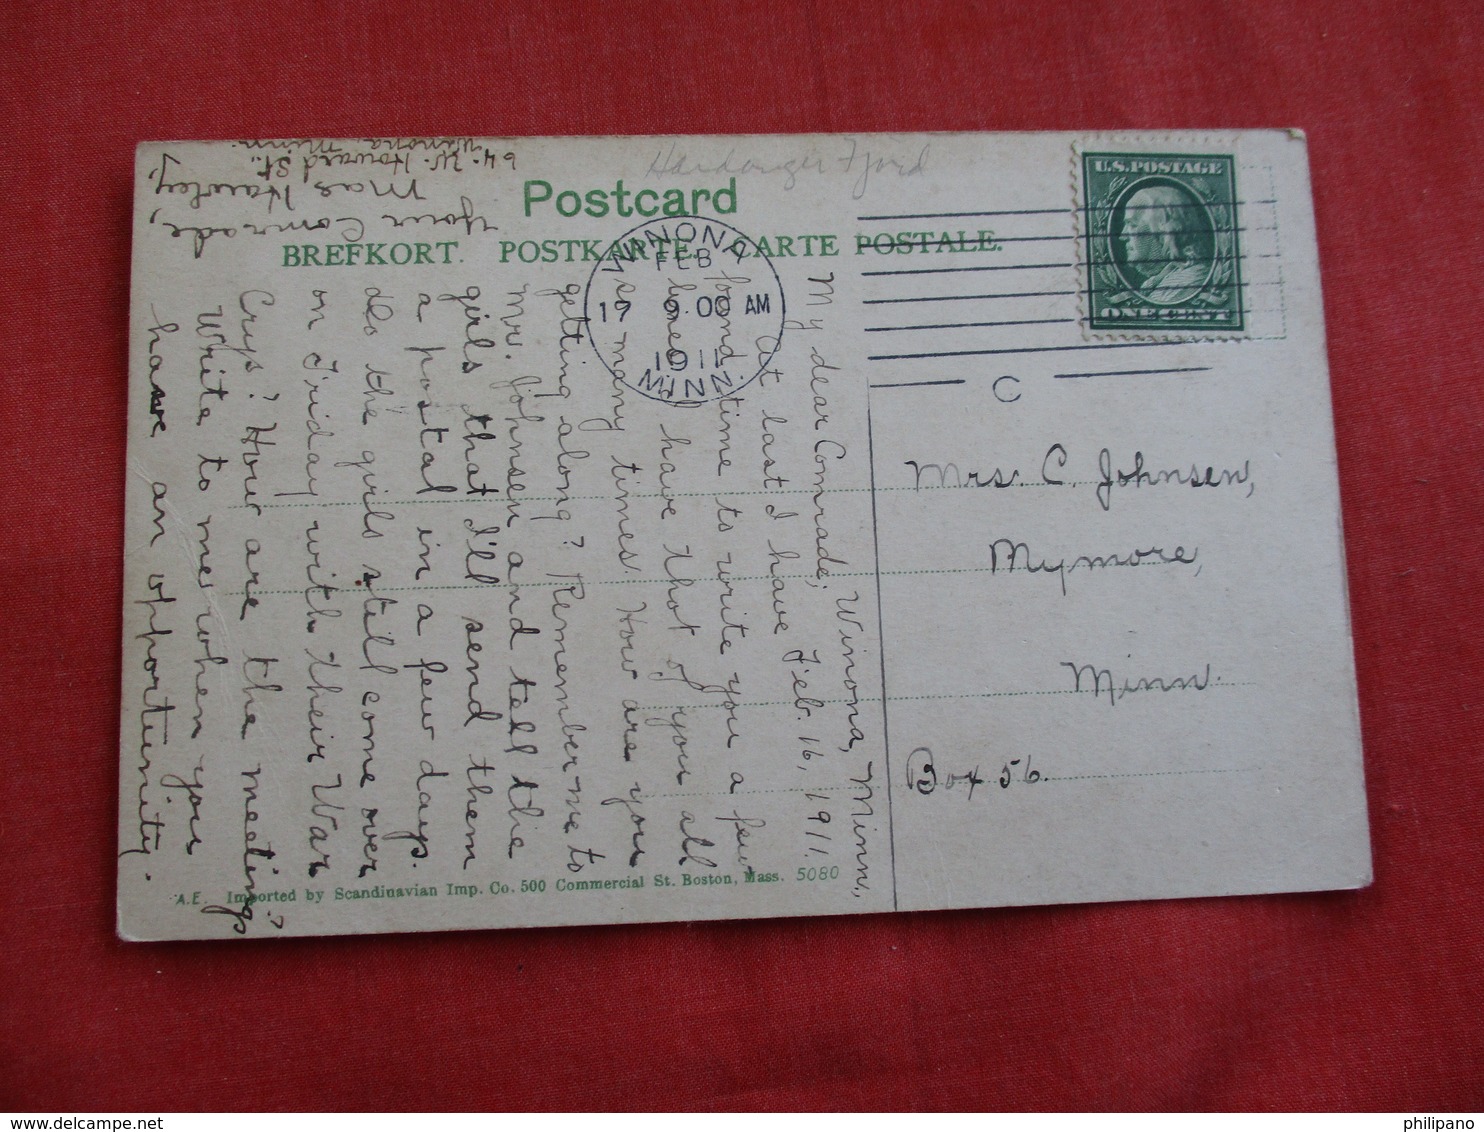 Hardanger Fjord
Postcard
BREFKORT. POSTKARTE. CARTE POSTALE.
U.S. POSTAGE
ONE CENT
WINONA
FEB
17 9.00 AM
1911
MINN.
C
Winona, Minn.,
Feb. 16, 1911.
My dear Comrade,
At last I have
found time to write you a few
lines. I have thot of you all
so many times. How are you
getting along? Remember me to
Mr. Johnsen and tell the
girls that I'll send them
a postal in a few days.
do the girls still come over
on Friday with their War
Crys? How are the meetings?
Write to me when you
have an opportunity.
Your Comrade,
Mae Hawley,
64. W. Howard St.,
Winona, Minn.
Mrs. C. Johnsen,
Mymore,
Minn.
Box 56.
A.E. Imported by Scandinavian Imp. Co. 500 Commercial St. Boston, Mass. 5080
delcampe.net
philipano